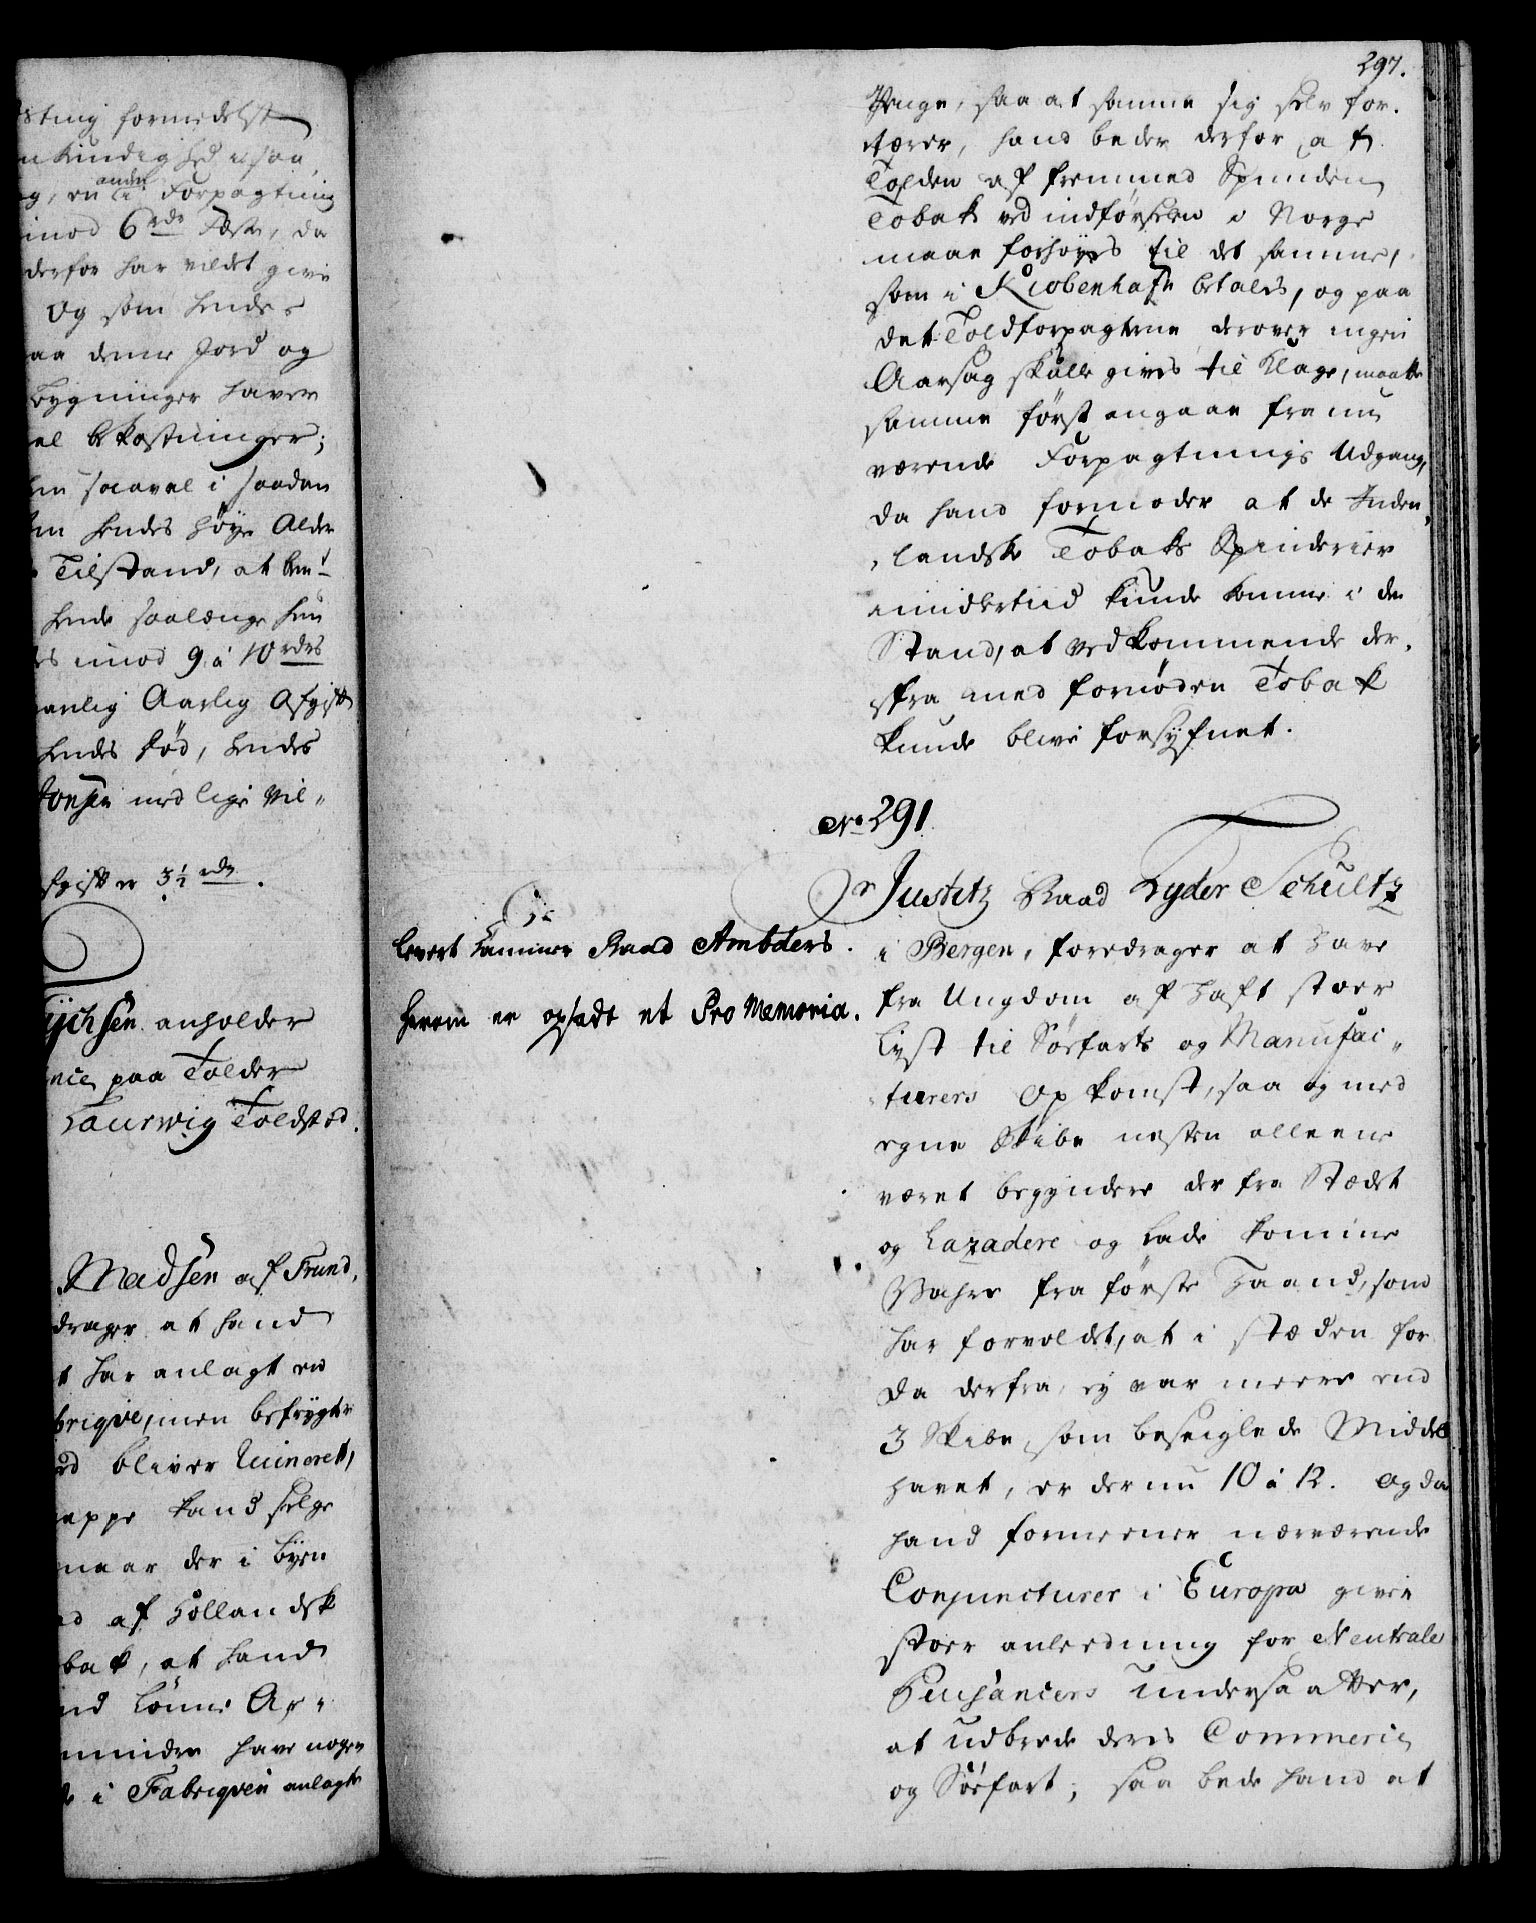 sting formedelst
nkindighed ocsaa
andre
og, en i Forpagtning
imod 6 rdr Feste, da
derfor har vildet give
Og som hendes
paa denne Jord og
Bygninger haver
el bekostninger;
hen saavel i saadan
hendes høye Alder
Tilstand, at bem:t
hende saalænge hun
des imod 9 à 10 rdrs
aarlig Aarlig Afgift
hendes Død, hendes
Jonsen med lige Vil-
fgift er 3½ rdr.
Tychsen anholder
nce paa Tolder
Laurwig Toldsted.
Madsen af Trund,
drager at hand
t har anlagt en
brique, men befrygter
ed bliver Ruineret,
neppe kand selge
naar der i Byen
ed af Hollandsk
bak, at hand
nd lønne Ar-
mindre have nogen
de i Fabriqven anlagte
297.
Penge, saa at samme sig selv for-
tærer, hand beder derfor, at
Tolden af fremmed Spunden
Tobak ved indførselen i Norge
maae forhøyes til det samme,
som i Kiøbenhafn betales, og paa
det Toldforpagterne derover ingen
Aarsag skulle gives til Klage, maatte
samme først angaae fra nu
værende Forpagtnings Udgang,
da hand formoder at de Inden-
landske Tobaks Spinderier
imidlertiid kunde komme i den
Stand, at vedkommende der-
fra med fornøden Tobak
kunde blive forsyfnet.
No 291.
levert Cammer Raad Ambders.
herom er opsadt et Pro Memoria.
Hr Justitz Raad Lyder Schultz
i Bergen, foredrager at have
fra Ungdom af haft stoer
Lyst til Søefarts og Manufac-
turers Opkomst, saa og med
egne Skibe nesten alleene
været begyndere der fra Stædet
og Lazadere og lade komme
Vahre fra første Haand, som
har forvoldet, at i stæden for
da derfra, ey var meere end
3 Skibe, som beseiglede Middel
havet, er der nu 10 à 12. Og da
hand formeener nærværende
Conjuncturer i Europa given
stoer anleedning for Neutrale
Puissancers Undersaatter,
at udbrede deres Commercie
og Søefart; saa bede hand at